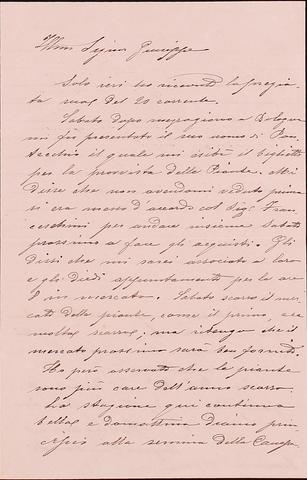 Illmo Signor Giuseppe
Solo ieri ho ricevuto la pregia-
ta sua del 20 corrente.
Sabato dopo mezzogiorno a Bologna
mi fu presentato il suo uomo di Pon
tecchio il quale mi esibì il biglietto
per la provvista delle Piante. Mi
disse che non avendomi veduto prima
si era messo d'accordo col Sig. Fran
ceschini per andare insieme Sabato
prossimo a fare gli acquisti. Gli
dissi che mi sarei associato a loro
e gli diedi appuntamento per le ore
8 sul mercato. Sabato scorso il mer
cato delle piante, come il primo, era
molto scarso; ma ritengo che il
mercato prossimo sarà ben fornito.
Ho però osservato che le piante
sono più care dell'anno scorso.
La stagione qui continua
bella e domattina diamo prin
cipio alla semina della Canapa